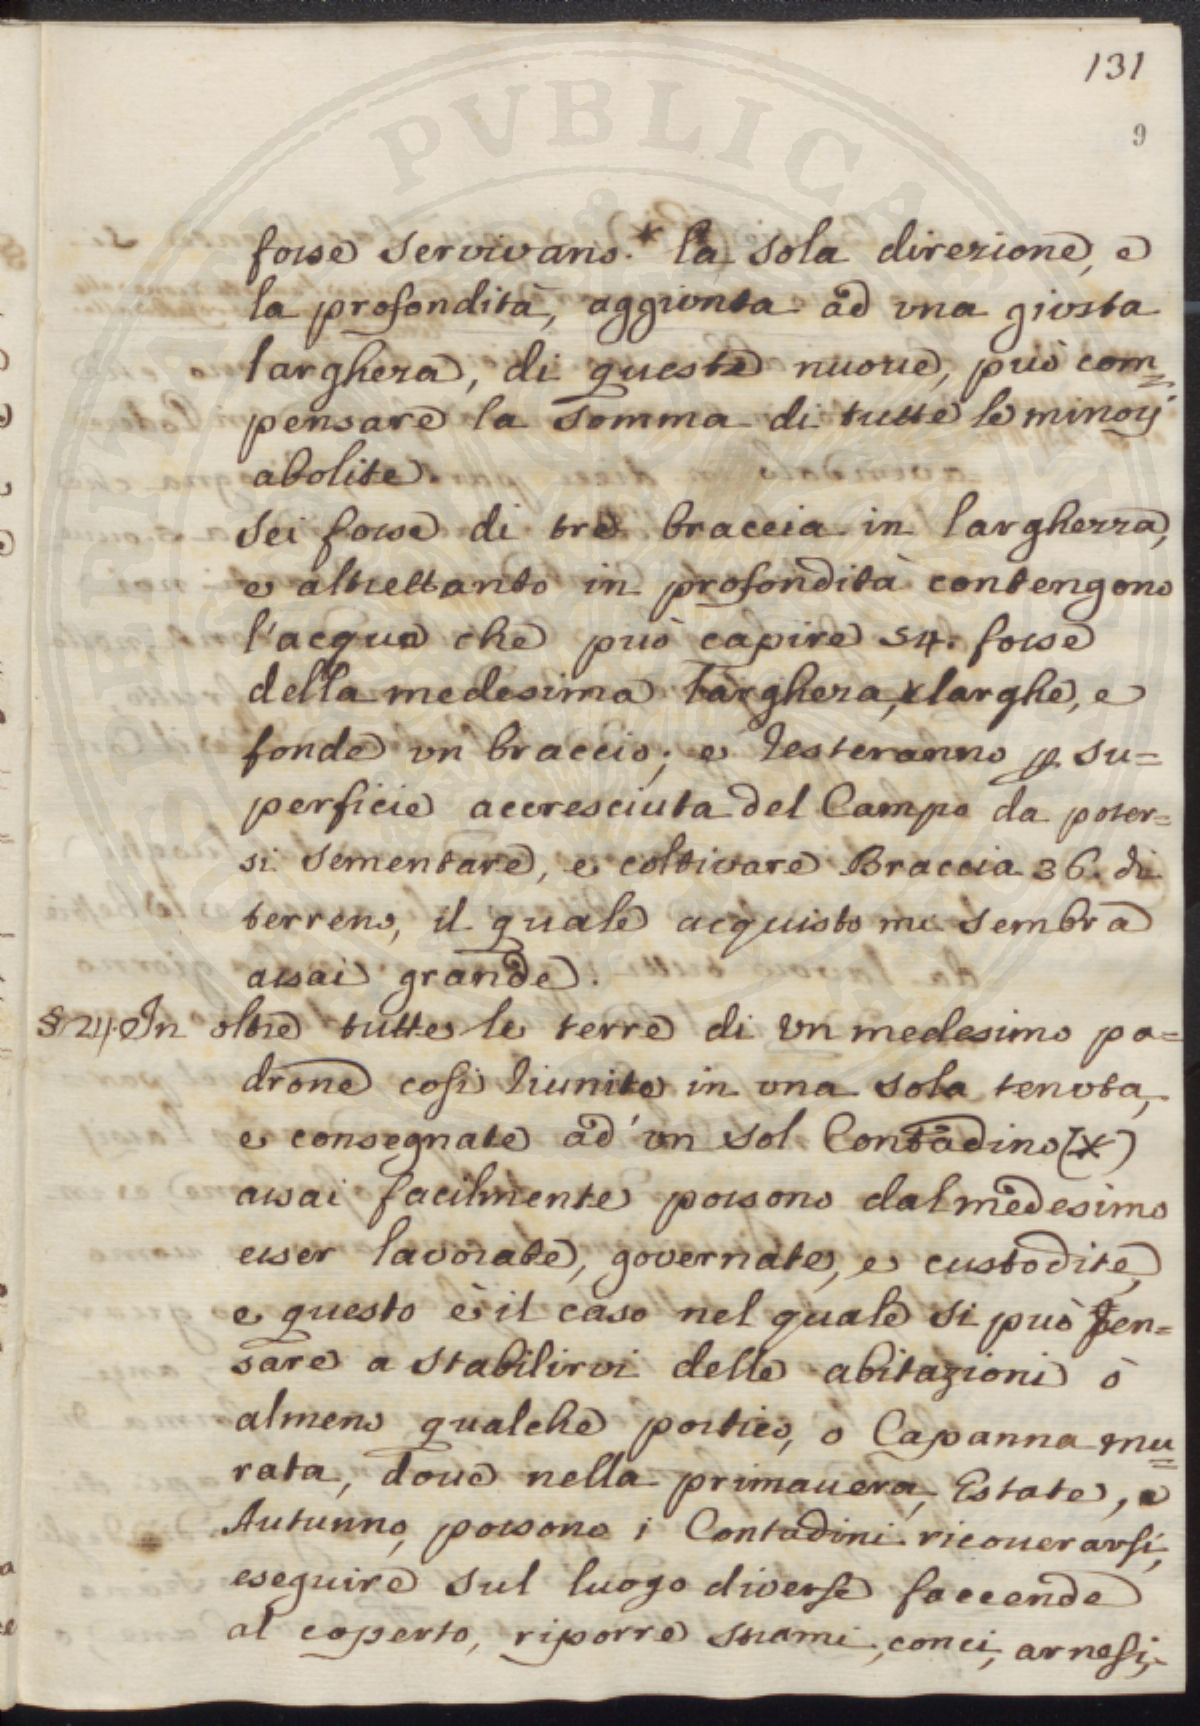 131
9
fosse servivano.* la sola direzione, e
la profondità, aggiunta ad una giusta
largheza, di queste nuove, può com=
pensare la somma di tutte le minorj
abolite.
Sei fosse di tre braccia in larghezza,
e altrettanto in profondità contengono
l'acqua che può capire 54. fosse
della medesima largheza, larghe, e
fonde un braccio; e resteranno p su=
perficie accresciuta del Campo da poter=
si sementare, e coltivare Braccia 36. di
terreno, il quale acquisto mi sembra
assai grande.
§ 24. In oltre tutte le terre di un medesimo pa=
drone cosi riunite in una sola tenuta,
e consegnate ad un sol Contadino (*)
assai facilmente possono dal medesimo
esser lavorate, governate, e custodite,
e questo è il caso nel quale si può pen=
sare a stabilirvi delle abitazioni ò
almeno qualche portico, o Capanna mu=
rata, doue nella primauera, Estate, e
Autunno, possono i Contadini ricouerarsi,
eseguire sul luogo diverse faccende
al coperto, riporre strami, conci, arnesi,